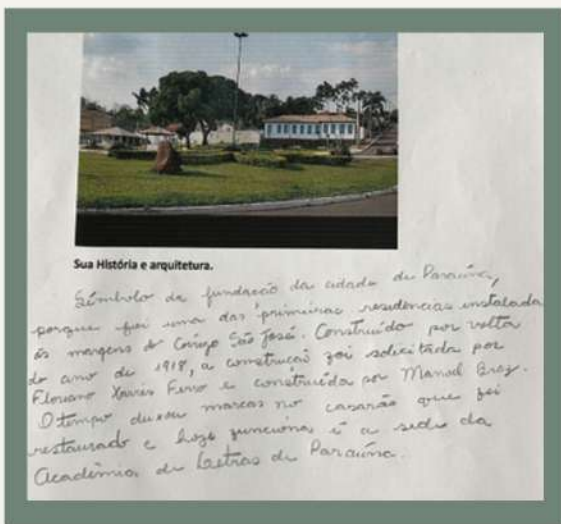 Sua História e arquitetura.
Símbolo da fundação da cidade de Paraúna,
porque foi uma das primeiras residencias instalada
ás margens do Corrego São José. Construído por volta
do ano de 1918, a construção foi solicitada por
Floriano Xavier Ferro e construída por Manoel Braz.
O tempo deixou marcas no casarão que foi
restaurado e hoje funciona é a sede da
Academia de Letras de Paraúna.